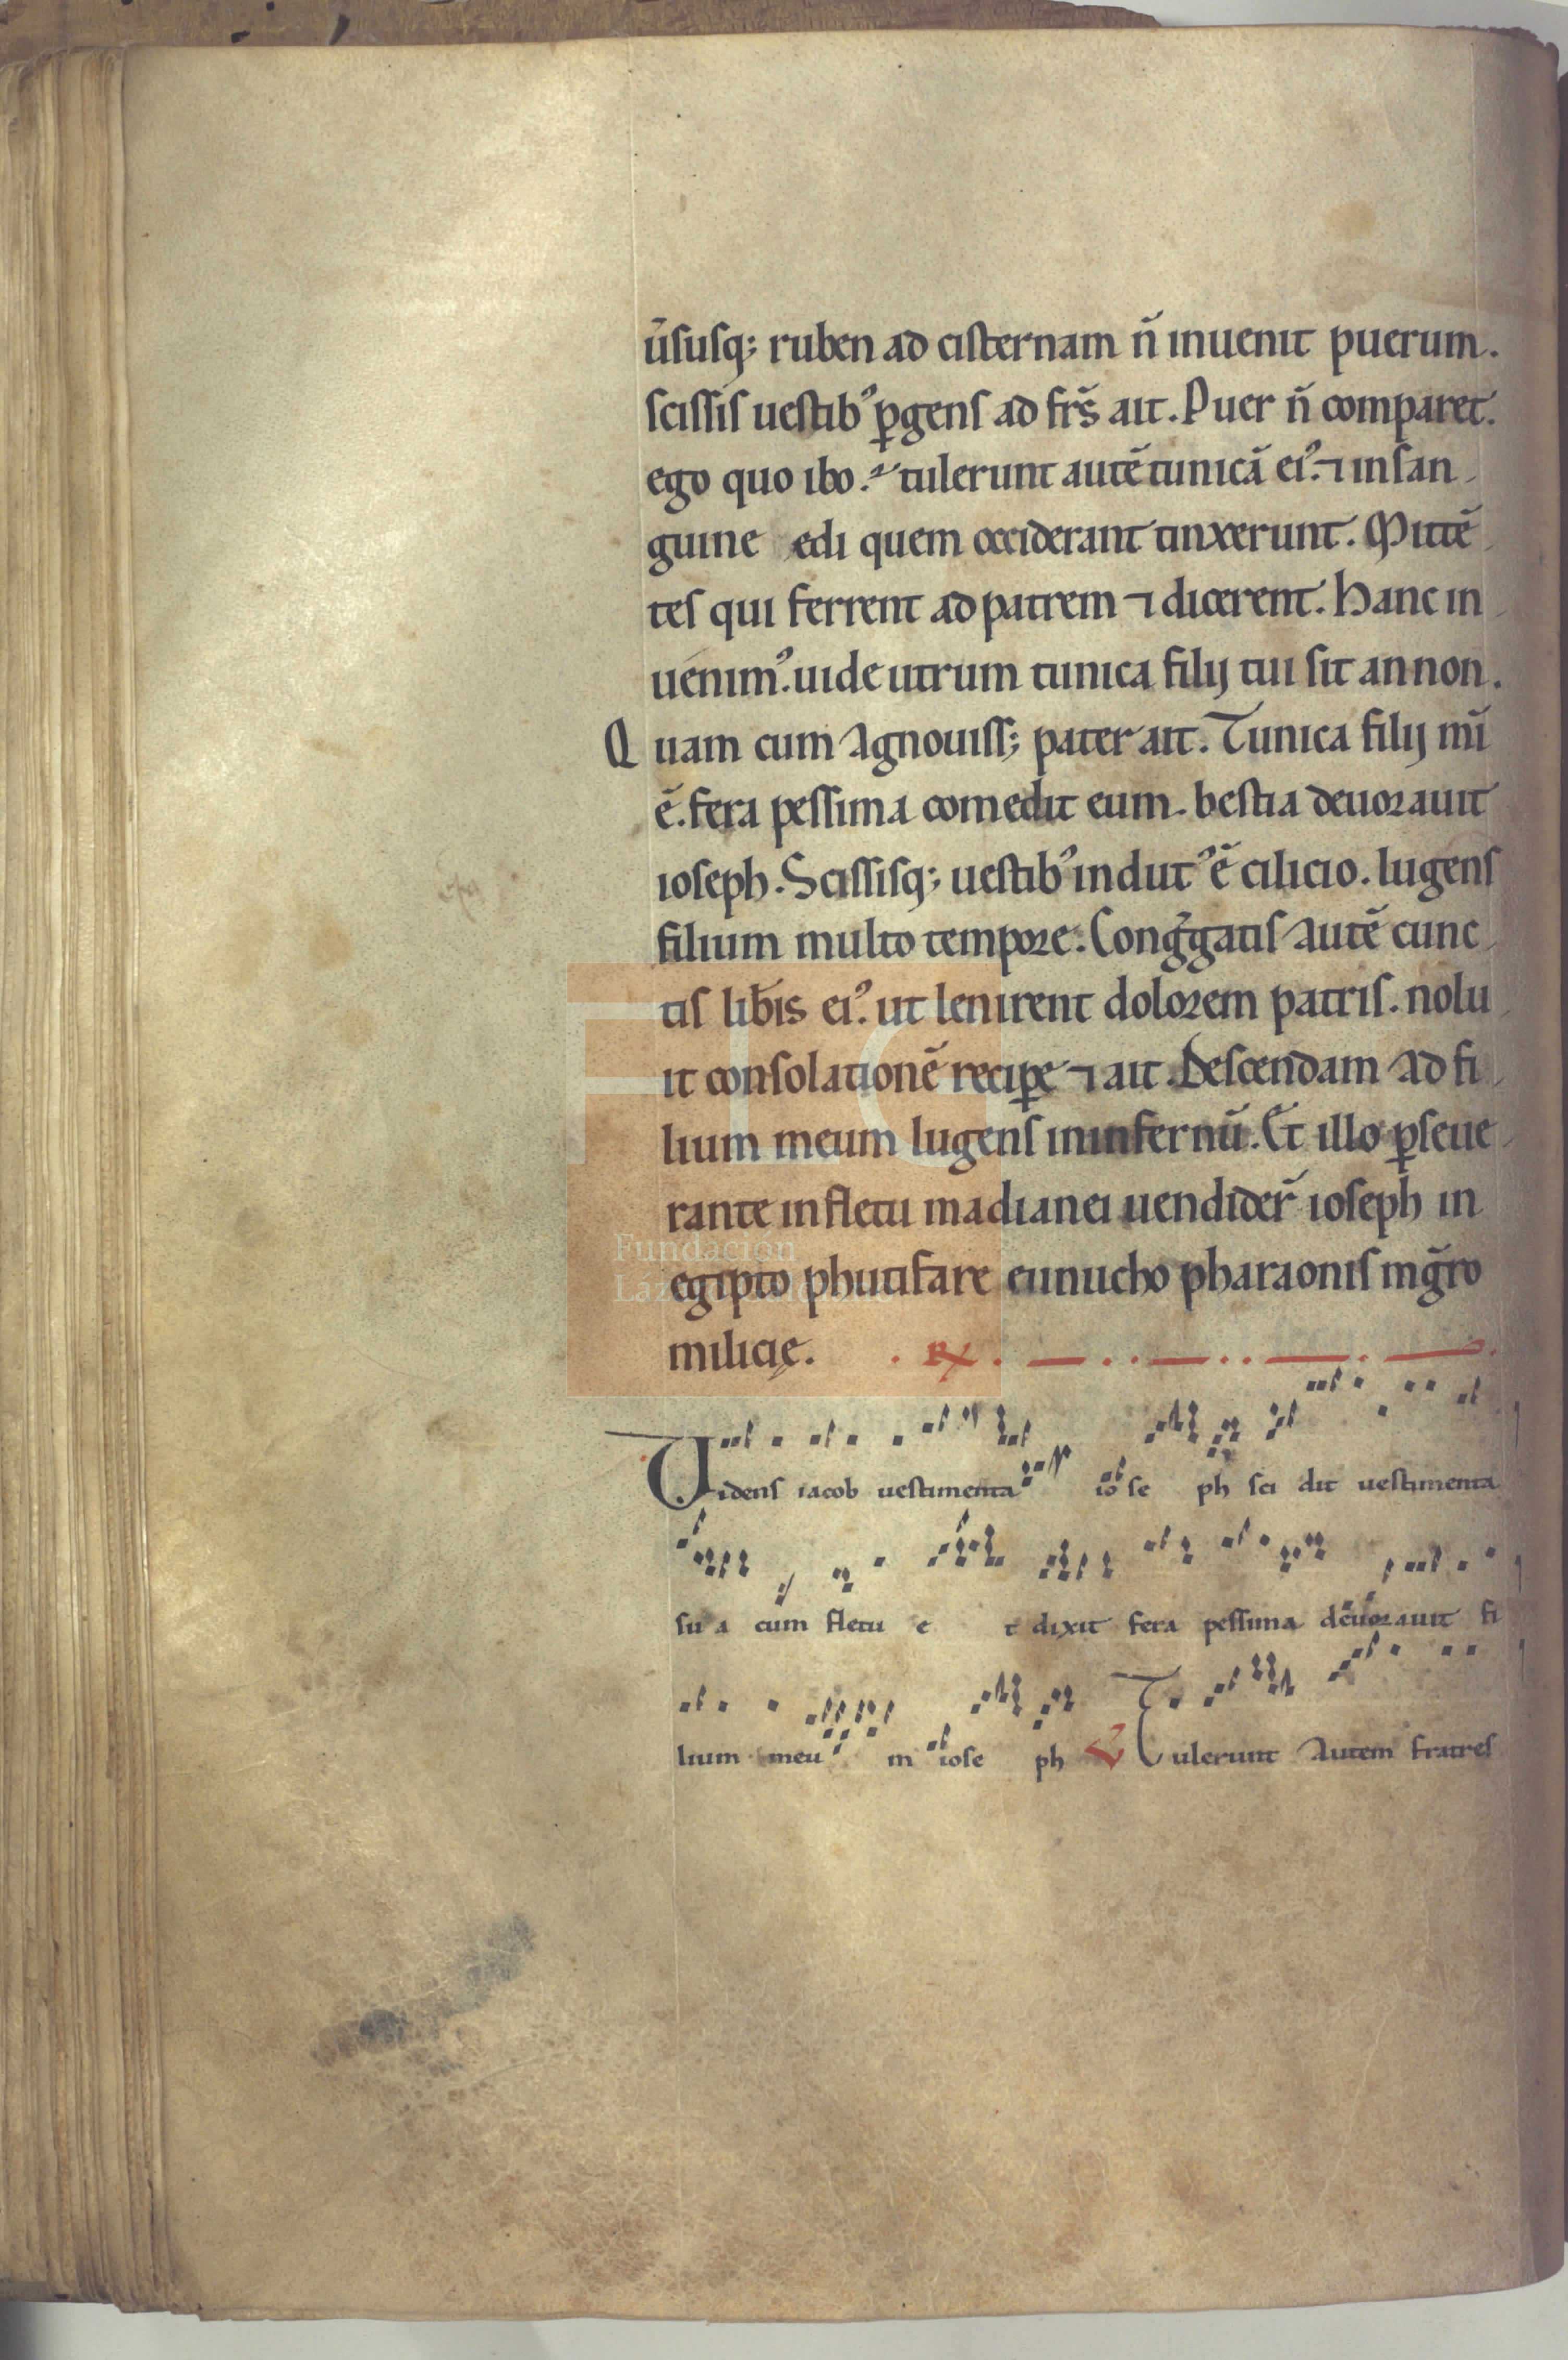 ũsusq; ruben ad cisternam ñ inuenit puerum.
scissis uestibꝰ ꝑgens ad frs̃ ait. Puer ñ comparet.
ego quo ibo. tulerunt autẽ tunicã eiꝰ. ⁊ in san
guine edi quem occiderant tinxerunt. Mittẽ
tes qui ferrent ad patrem ⁊ dicerent. Hanc in
uenimꝰ. uide utrum tunica filij tui sit an non.
Quam cum agnouiss; pater ait. Tunica filij mı̃
ẽ. fera pessima comedit eum. bestia deuorauit
ioseph. Scissisq; uestibꝰ indutꝰ ẽ cilicio. lugens
filium multo tempore. Cong̃gatis autẽ cunc
tis lib̃is eiꝰ. ut lenirent dolorem patris. nolu
it consolationẽ reciꝑe ⁊ ait. Descendam ad fi
lium meum lugens in infernũ. Et illo ꝑseue
rante in fletu madianei uendider̃ ioseph in
egipto phutifare eunucho pharaonis mg̃ro
milicię. ℞.
Videns iacob uestimenta iose ph sci dit uestimenta
su a cum fletu e t dixit fera pessima deuorauit fi
lium meu m iose ph ℣ Tulerunt autem fratres
Fundación